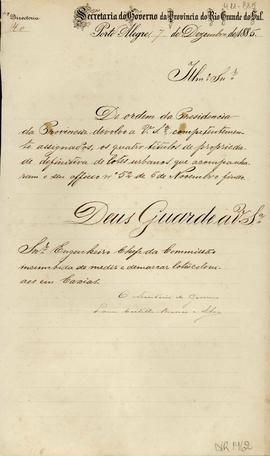 Directoria
Secretaria do Governo da Provincia do Rio Grande do Sul.
Porto Alegre, 7 de Dezembro de 1885.
Illmo. Snr.
De ordem da Presidencia
da Provincia devolvo a V. Sa. competentemente
assignados, os quatro titulos de propriedade
definitiva de lotes urbanos que acompanha-
ram o seu officio n. 52 de 6 de Novembro findo.
Deus Guarde a V. Sa.
Snr. Engenheiro Chefe da Commissão
incumbida de medir e demarcar lotes colo-
niaes em Caxias.
O Secretario do Governo